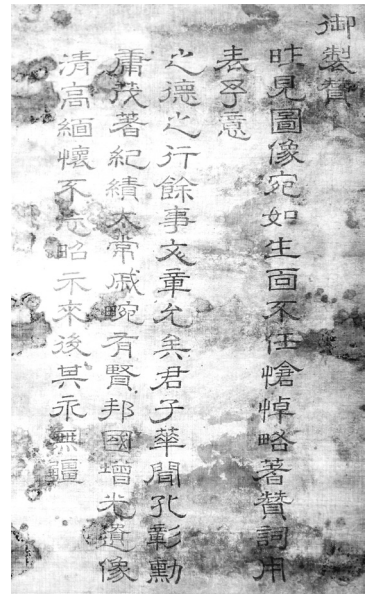 御製贊
昨見圖像宛如生面不任愴悼略著贊詞用
表予意
之德之行餘事文章允矣君子華聞孔彰勳
庸茂著紀績太常戚畹有賢邦國增光遺像
清高緬懷不忘昭示來後其永無疆